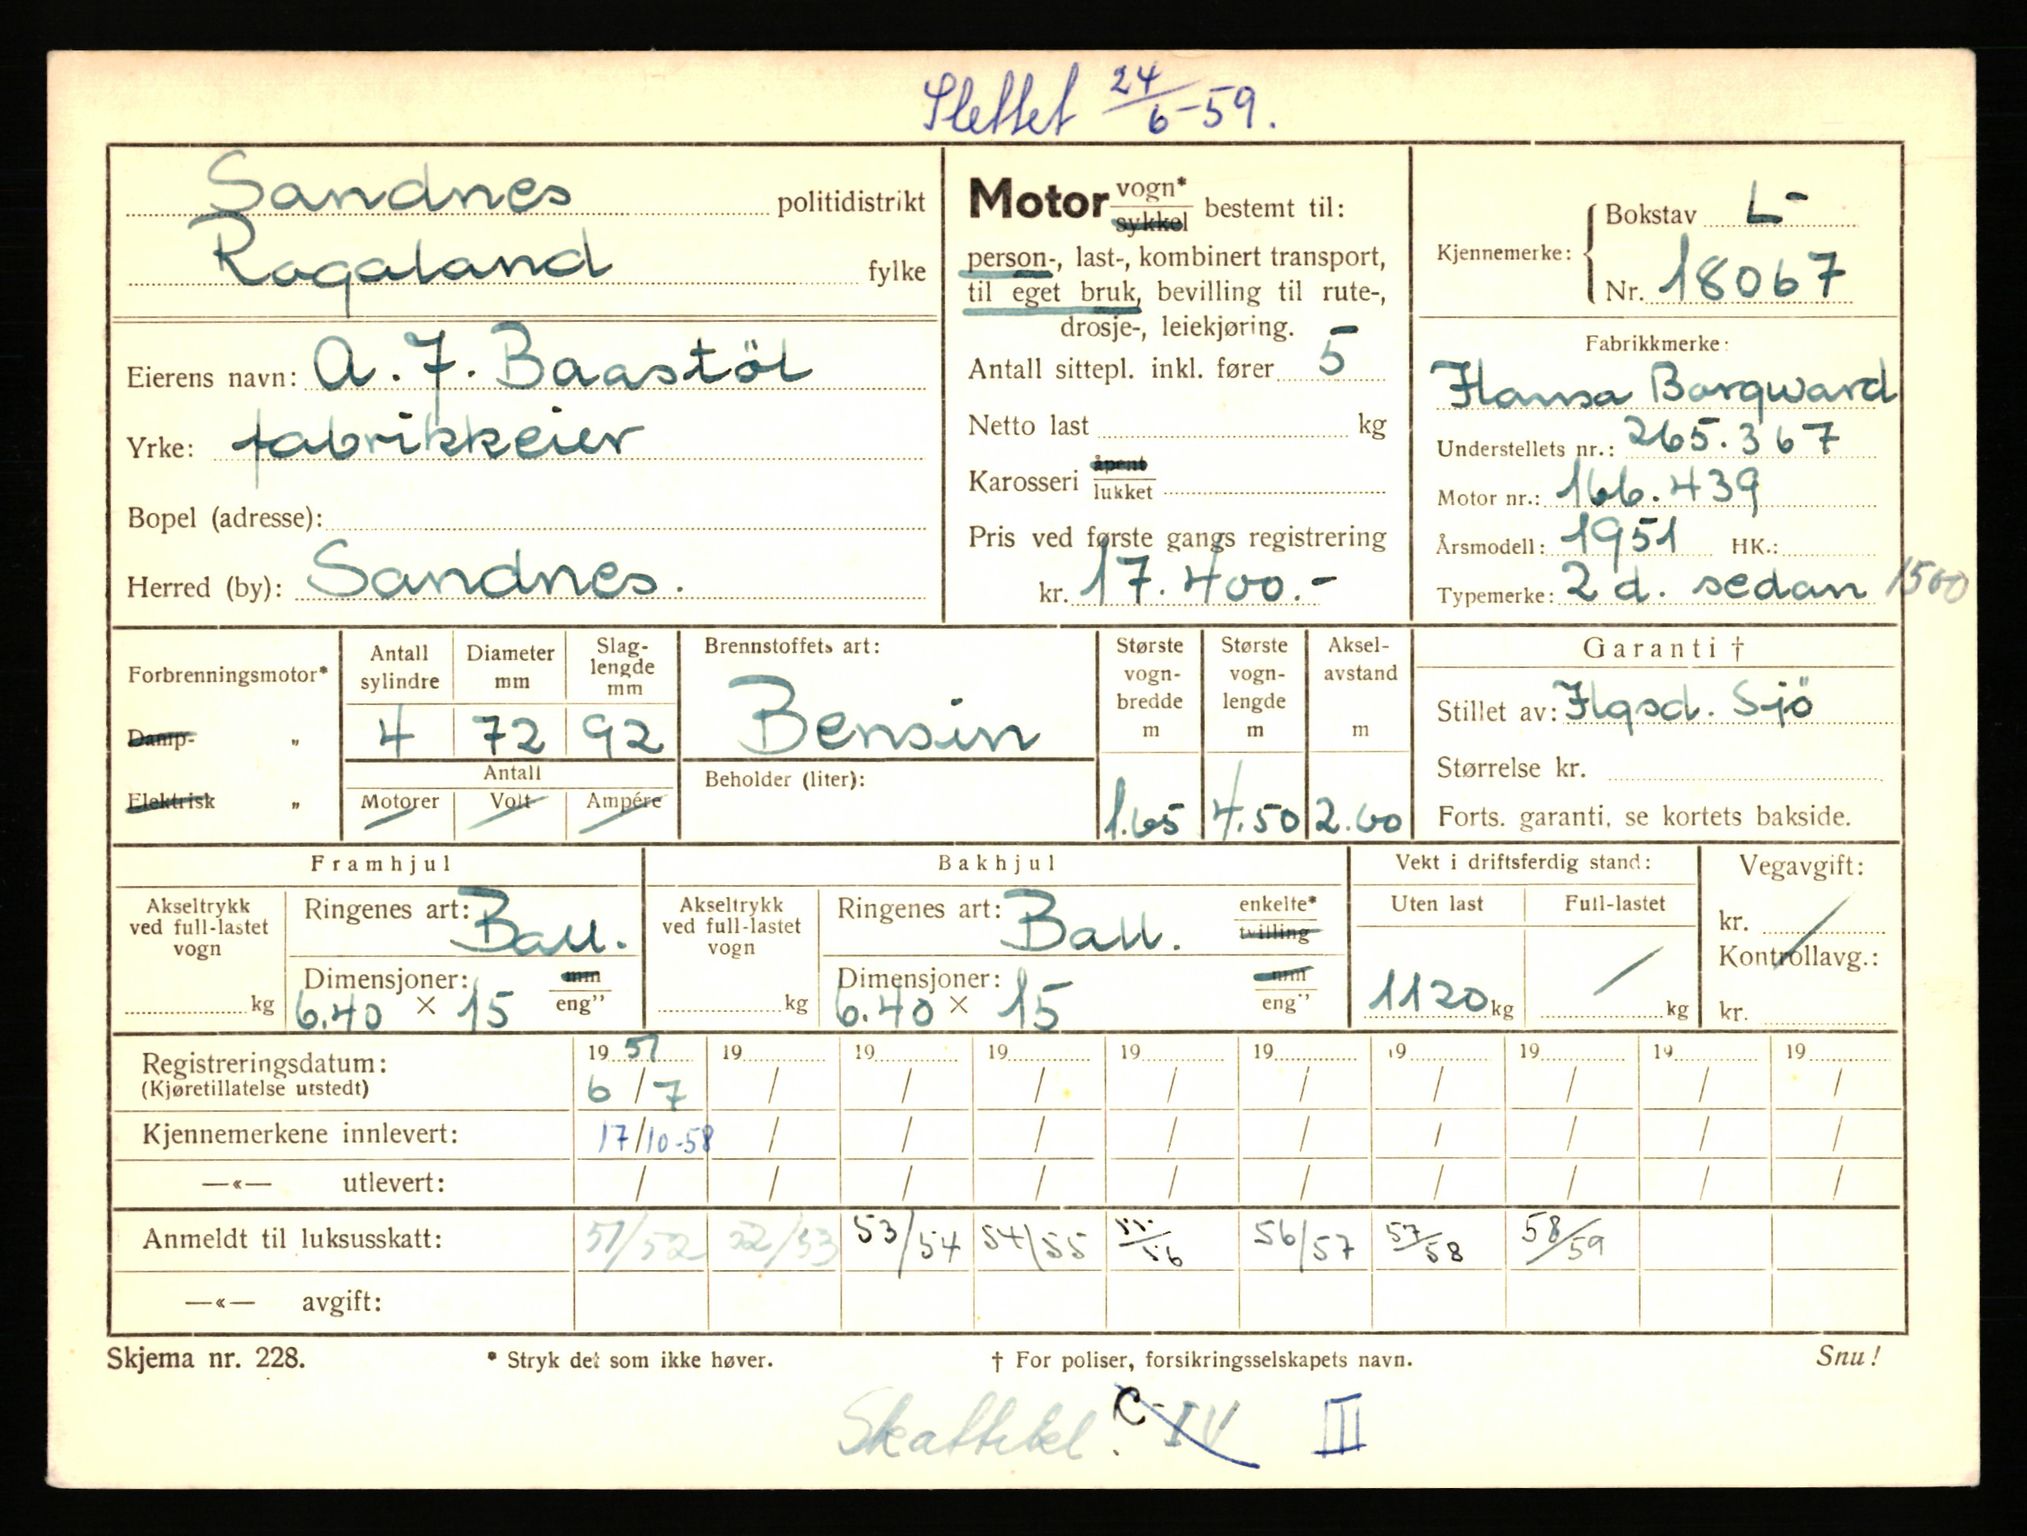 Slettet 24/6-59.
Sandnes politidistrikt
Rogaland fylke
Eierens navn: A. F. Baastöl
Yrke: fabrikkeier
Bopel (adresse):
Herred (by): Sandnes.
Motor vogn* / sykkel bestemt til:
person-, last-, kombinert transport,
til eget bruk, bevilling til rute-,
drosje-, leiekjøring.
Antall sittepl. inkl. fører 5
Netto last kg
Karosseri åpent / lukket
Pris ved første gangs registrering
kr. 17.400.-
Kjennemerke: Bokstav L-
Nr. 18067
Fabrikkmerke:
Hansa Borgward
Understellets nr.: 265.367
Motor nr.: 166.439
Årsmodell: 1951 HK.:
Typemerke: 2 d. sedan 1500
Forbrenningsmotor*
Damp- "
Elektrisk "
Antall sylindre 4
Diameter mm 72
Slag-lengde mm 92
Antall
Motorer Volt Ampére
Brennstoffets art:
Bensin
Beholder (liter):
Største vogn-bredde m 1.65
Største vogn-lengde m 4.50
Aksel-avstand m 2.60
Garanti †
Stillet av: Hgsd. Sjö
Størrelse kr.
Forts. garanti, se kortets bakside.
Framhjul
Akseltrykk ved full-lastet vogn kg
Ringenes art: Ball.
Dimensjoner: mm / eng"
6.40 × 15
Bakhjul
Akseltrykk ved full-lastet vogn kg
Ringenes art: Ball. enkelte* / tvilling
Dimensjoner: mm / eng"
6.40 × 15
Vekt i driftsferdig stand:
Uten last Full-lastet
1120 kg / kg
Vegavgift:
kr.
Kontrollavg.:
kr.
Registreringsdatum: 19 51 19 19 19 19 19 19 19 19 19
(Kjøretillatelse utstedt) 6/7 / / / / / / / / /
Kjennemerkene innlevert: 17/10-58 / / / / / / / / /
—«— utlevert: / / / / / / / / / /
Anmeldt til luksusskatt: 51/52 52/53 53/54 54/55 55/56 56/57 57/58 58/59
—«— avgift:
Skjema nr. 228. * Stryk det som ikke høver. † For poliser, forsikringsselskapets navn. Snu!
C- IV III